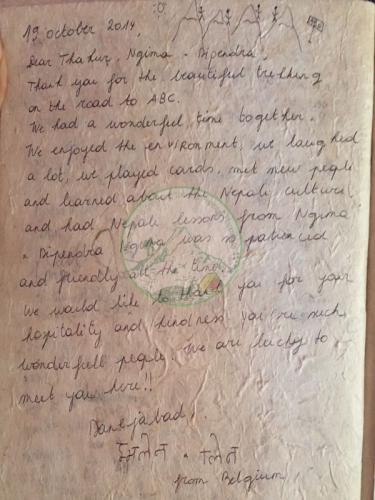 19 october 2014,
Dear Thakur, Ngima - Dipendra,
Thank you for the beautiful trekking
on the road to ABC.
We had a wonderful time together.
We enjoyed the environment, we laughed
a lot, we played cards, met new people
and learned about the Nepali culture,
and had Nepali lessons from Ngima
Dipendra Ngima was so patienced
and friendly all the time.
We would like to thank you for your
hospitality and kindness you're such
wonderfull people. We are lucky to
meet you here!!
from Belgium